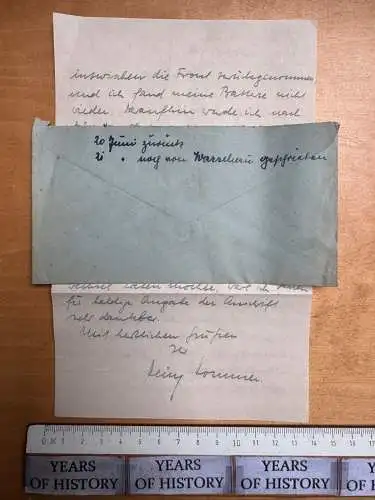 inzwischen die Front zurückgenommen
und ich fand meine Batterie nicht
wieder. Daraufhin wurde ich nach
20 Juni zurück
21 " noch von Warschau geschrieben
für baldige Angabe der Anschrift
sehr dankbar.
Mit herzlichen Grüßen
Ihr
0 1 2 3 4 5 6 7 8 9 10 11 12 13 14 15 16 17
YEARS OF HISTORY YEARS OF HISTORY YEARS OF HISTORY YEARS OF HISTORY